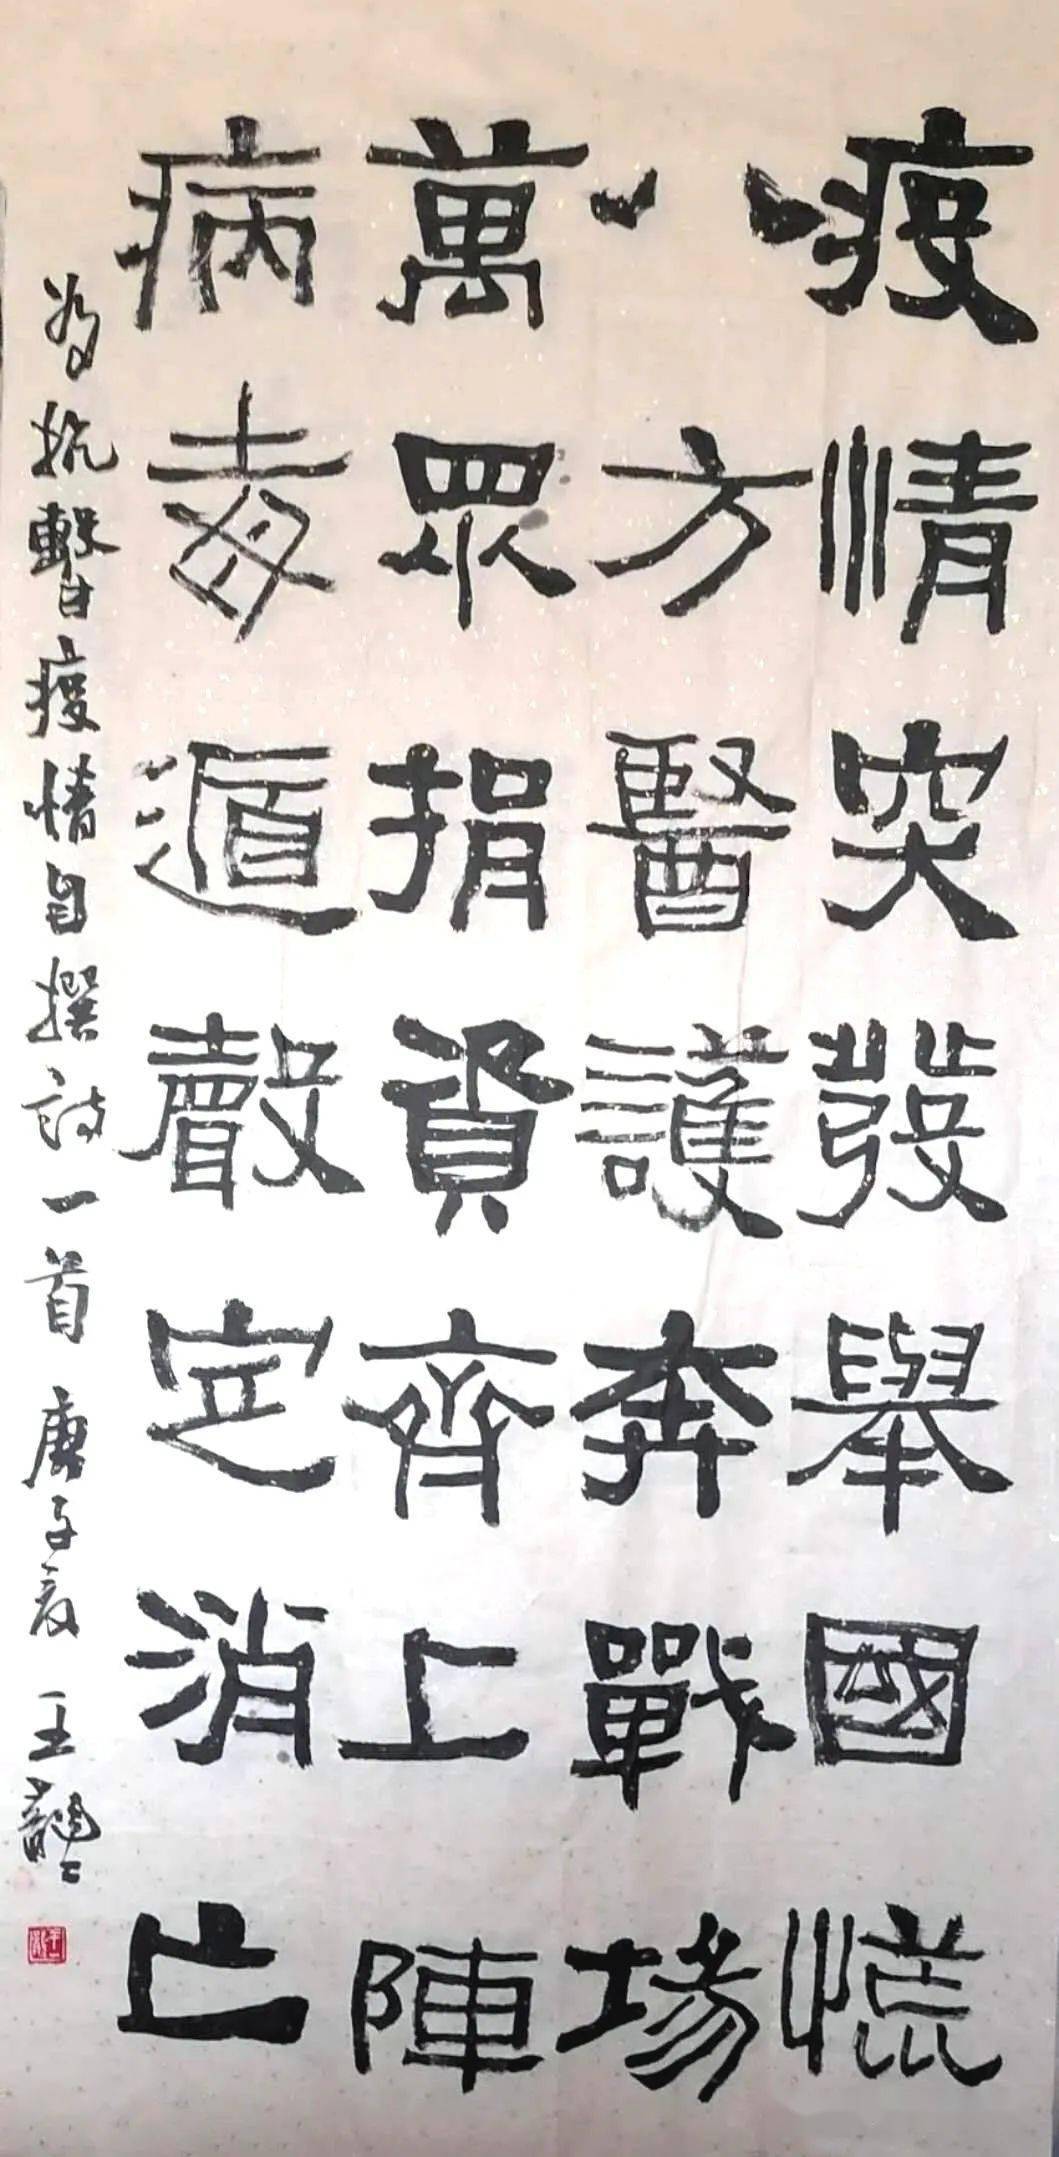 疫情突發舉國慌
八方醫護奔戰場
萬眾捐資齊上陣
病毒遁聲定消亡
為抗擊疫情自撰詩一首 庚子夏 王